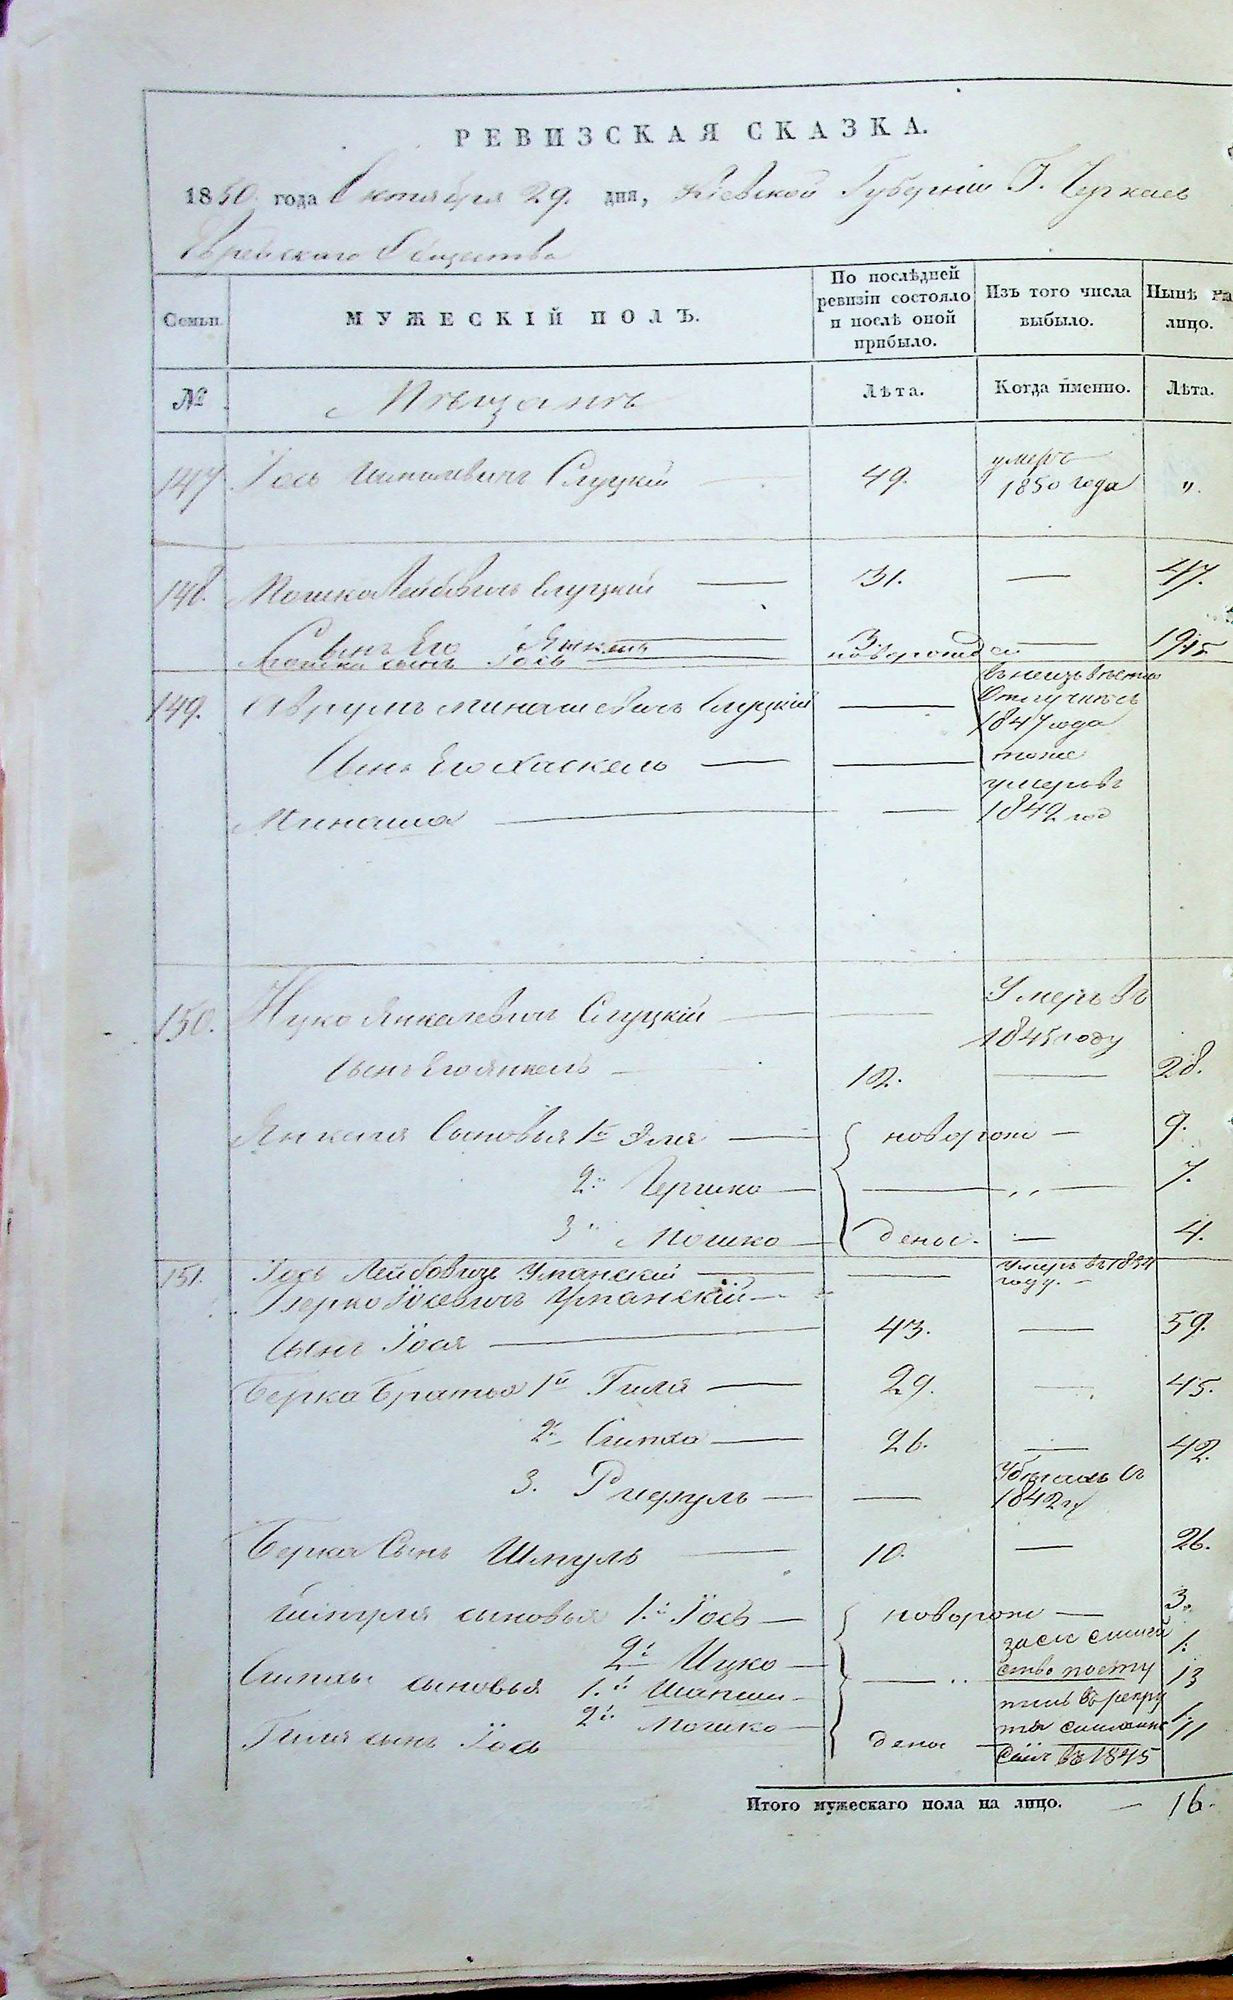 РЕВИЗСКАЯ СКАЗКА.
1850 года Октября 29. дня, Кіевской Губерніи Г. Черкасъ
Еврейскаго Общества
Семьи.
МУЖЕСКІЙ ПОЛЪ.
По послѣдней ревизіи состояло и послѣ оной прибыло.
Изъ того числа выбыло.
Нынѣ на лицо.
№
Мѣщанъ
Лѣта.
Когда именно.
Лѣта.
147 Іось Слуцкій 49. умеръ 1850 года „.
148. Мошко Лейбовичъ Слуцкій — 31. — 47.
Сынъ Его Янкель 3. — 19
Мошка сынъ Іось новорожден 15
149. Аврумъ Минашевичъ Слуцкій — въ неизвѣстно отлучкѣ съ 1847 года
Сынъ Его Хаскель — — тоже
Минаша — — умеръ въ 1842 год
150. Ицко Янкелевичъ Слуцкій — — Умеръ въ 1845 году
Сынъ Его Янкель — 12. — 28.
Янкеля Сыновья 1й Эля — новорож — 9.
2й Гершко — — „ — 7.
3й Мошко — денъ. — 4.
151. Іось Лейбовичъ Уманскій — — Умеръ въ году. —
Берко Іосевичъ Уманскій —
Сынъ Іося — 43. — 59.
Берка Братья 1й Гиля — 29. — 45.
2й Симха — 26. — 42.
3. — — 1842 г
Берка Сынъ Шмуль — 10. — 26.
Шмуля сыновья 1й Іось — новорож — 3.
2й Ицко — 1.
Симхи сыновья 1й — „ 13
2й Мошко — 1.
Гиля сынъ Іось дены въ 1845 11
Итого мужескаго пола на лицо. — 16.